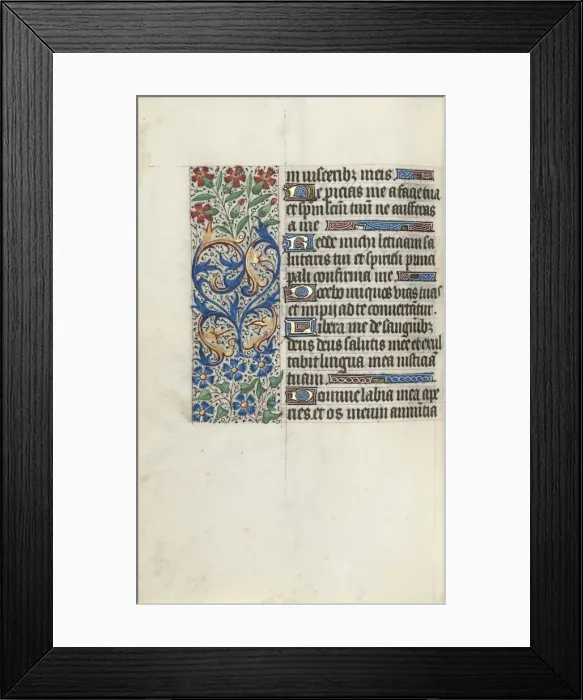 in uisceribz meis
Ne picias me a facie tua
et spm scm tuu ne auferas
a me
Redde michi leticiam sa
lutaris tui et spiritu princi
pali confirma me
Docebo iniquos vias tuas
et impij ad te conuertetur.
Libera me de sanguibz
deus deus salutis mee et exul
tabit lingua mea iusticiā
tuam.
Domine labia mea ape
ries. et os meum annūtia